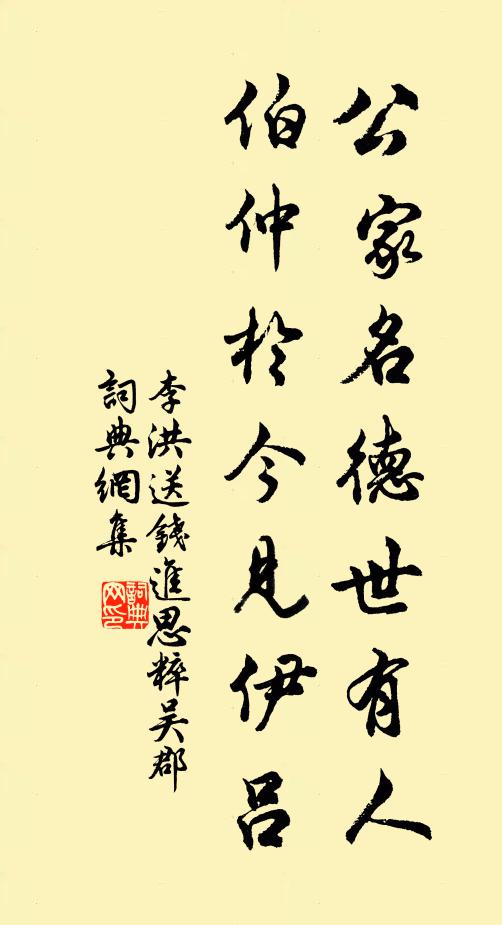 公家名德世有人
伯仲於今見伊呂
李洪送錢進思粹吳郡
詞典網集
詞典網印